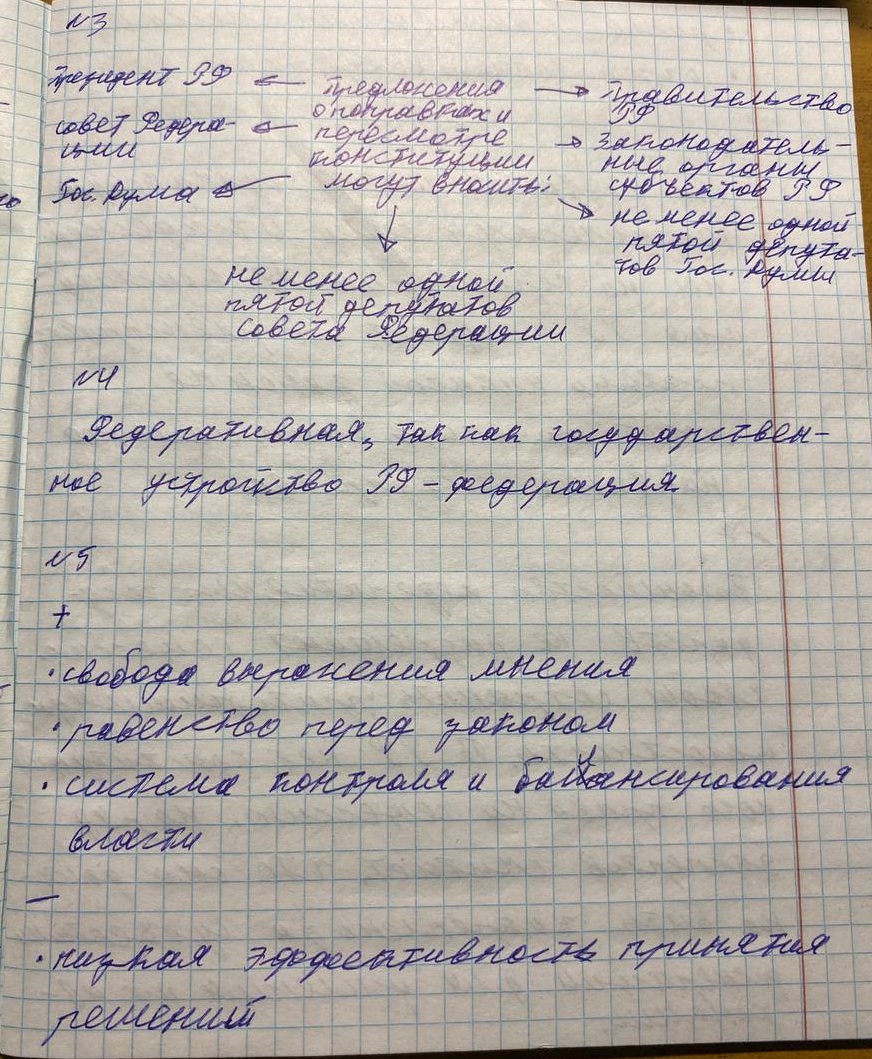 N3
Президент РФ
совет Федера-
ции
Гос. Дума
предложения
о поправках и
пересмотре
конституции
могут вносить:
Правительство
РФ
Законодатель-
ные органы
субъектов РФ
не менее одной
пятой депута-
тов Гос. Думы
не менее одной
пятой депутатов
совета Федерации
N4
Федеративная, так как государствен-
ное устройство РФ - федерация
N5
+
· свобода выражения мнения
· равенство перед законом
· система контроля и балансирования
власти
-
· низкая эффективность принятия
решений